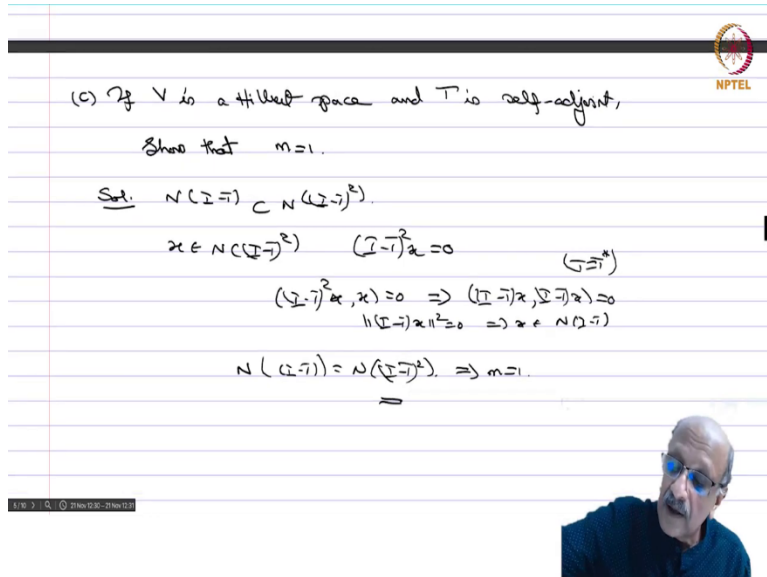 NPTEL
(c) If V is a Hilbert space and T is self-adjoint,
Show that m=1.
Sol. N(I-T) ⊂ N((I-T)²).
x ∈ N((I-T)²) (I-T)²x = 0
(T=T*)
((I-T)²x, x) = 0 ⇒ ((I-T)x, (I-T)x) = 0
‖(I-T)x‖² = 0 ⇒ x ∈ N(I-T)
N((I-T)) = N((I-T)²). ⇒ m=1.
5 / 10 21 Nov 12:30 - 21 Nov 12:31